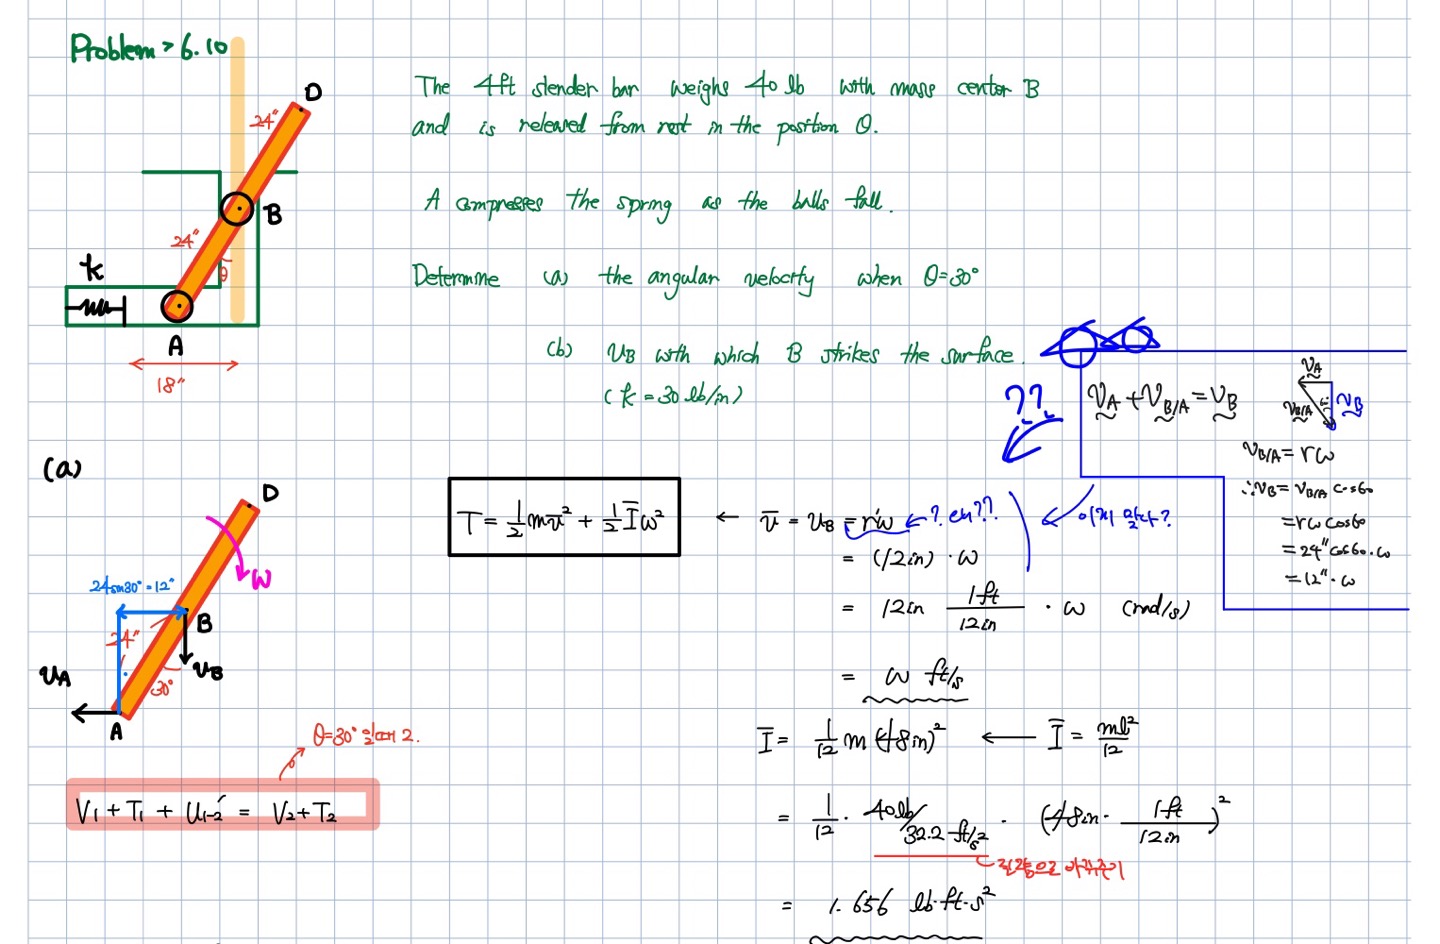 Problem > 6.10
D
24"
B
24"
θ
k
A
18"
The 4ft slender bar weighs 40 lb with mass center B
and is released from rest in the position θ.
A compresses the spring as the balls fall.
Determine (a) the angular velocity when θ=30°
(b) υB with which B strikes the surface.
(k = 30 lb/in)
??
υA + υB/A = υB
υA
υB/A
υB
υB/A = rω
∴υB = υB/A cos60
= rω cos60
= 24" cos60·ω
= 12"·ω
(a)
D
ω
24sin30° = 12"
24"
B
υB
30°
υA
A
T = 1/2 mυ̅² + 1/2 I̅ω²
← υ̅ = υB = rω ←?
= (12in)·ω
= 12in 1ft/12in · ω (rad/s)
= ω ft/s
I̅ = 1/12 m (48in)² ← I̅ = ml²/12
= 1/12 · 40lb/32.2 ft/s² · (48in · 1ft/12in)²
= 1.656 lb·ft·s²
θ=30° 일때 2.
V1 + T1 + U1-2' = V2 + T2